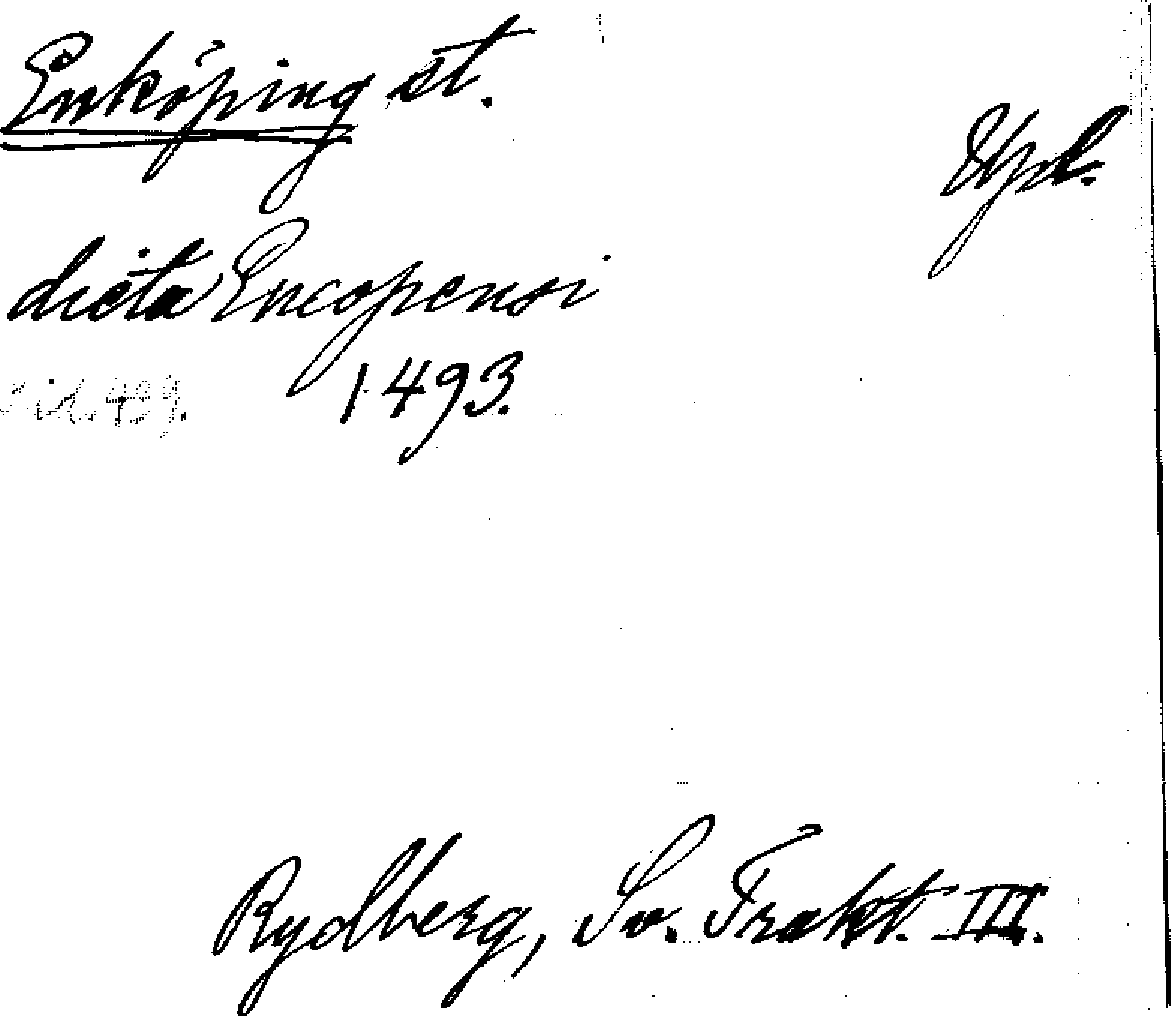 Enköping st.
Upl.
dicta Encopensi
1493.
sid. 439.
Rydberg, Sv. Trakt. III.